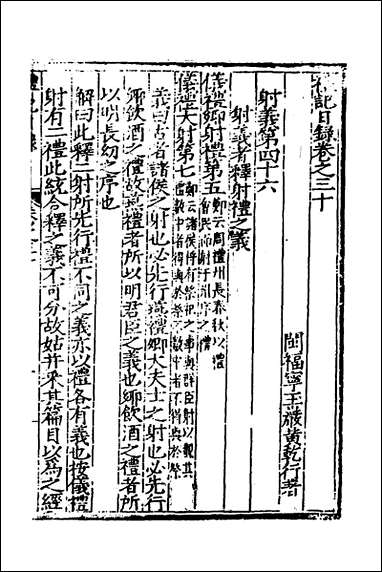 禮記日錄卷之三十
閩福寧玉巖黃乾行著
射義第四十六
射義者釋射禮之義
儀禮鄉射禮第五
鄭云周禮州長春秋以禮
會民而射于州序之禮
儀禮大射第七
鄭云諸侯將有祭祀之事與群臣射以觀其
禮數中者得與於祭不數中者不得與於祭
義曰古者諸侯之射也必先行燕禮卿大夫士之射也必先行
鄉飲酒之禮故燕禮者所以明君臣之義也鄉飲酒之禮者所
以明長幼之序也
解曰此釋二射所先行禮不同之義亦以禮各有義也按儀禮
射有二禮此統合釋之義不可分故姑并采其篇目以為之經